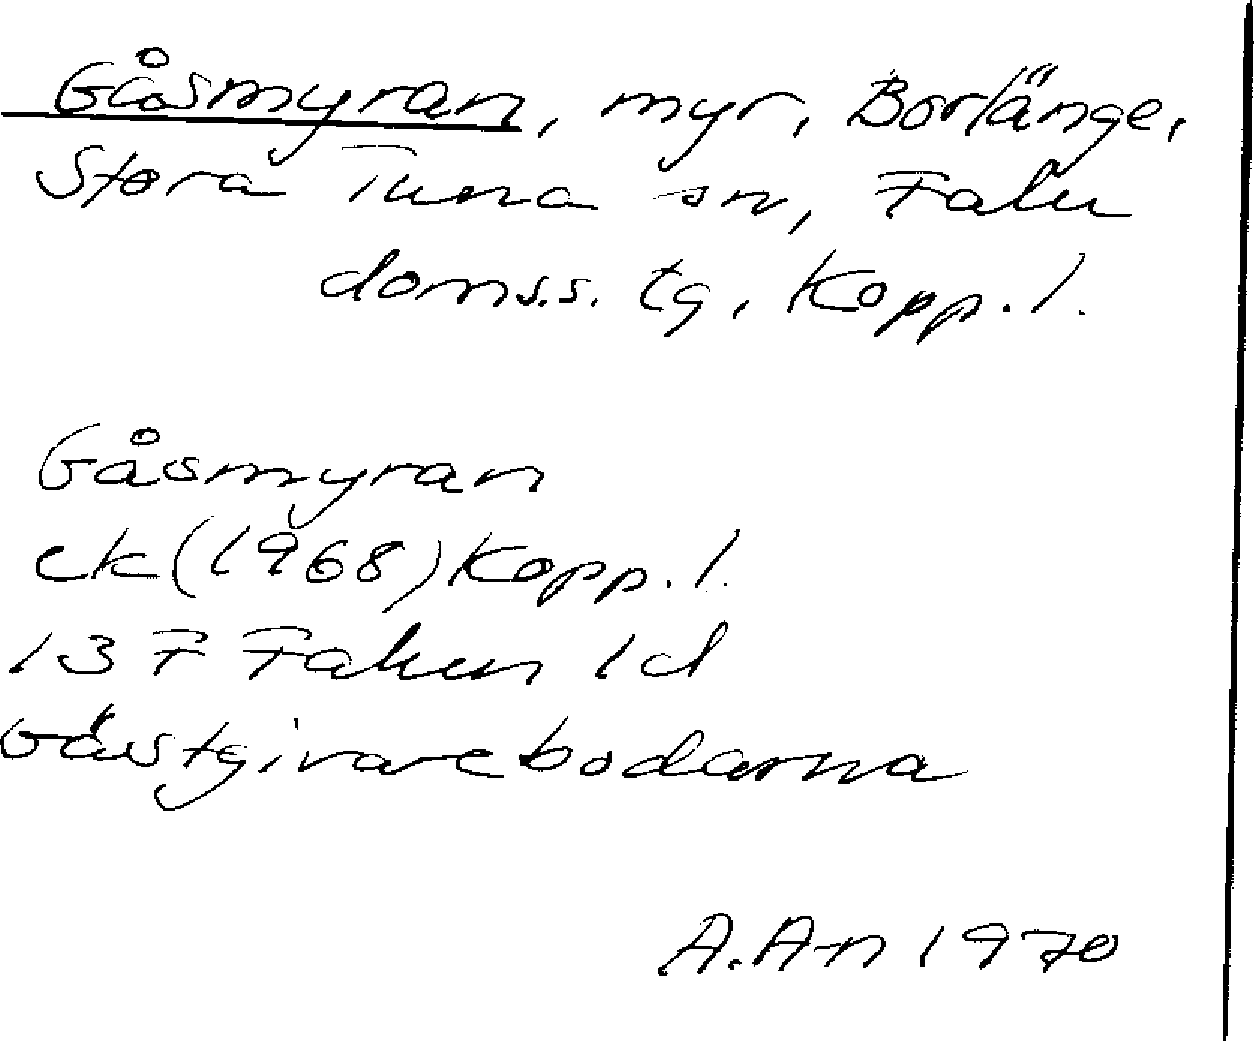 Gåsmyran, myr, Borlänge,
Stora Tuna sn, Falu
doms.s. tg, Kopp. l.
Gåsmyran
ek (1968) Kopp. l.
13 F Falun 1d
Gästgivarebodarna
A.A-n 1970